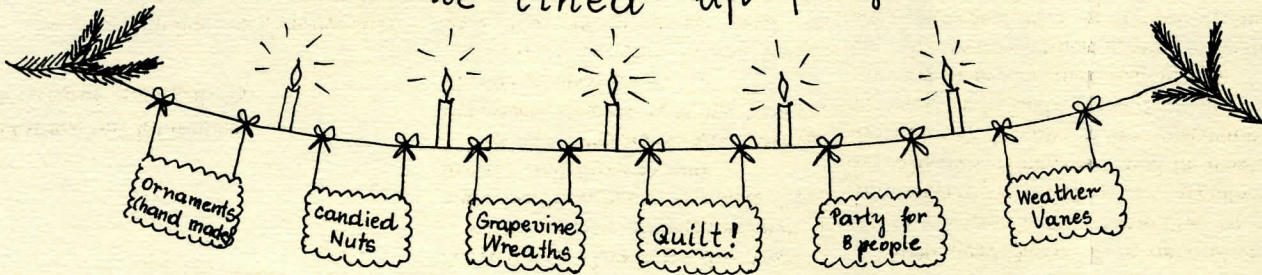 lined up
Ornaments
(hand made)
candied
Nuts
Grapevine
Wreaths
Quilt!
Party for
8 people
Weather
Vanes